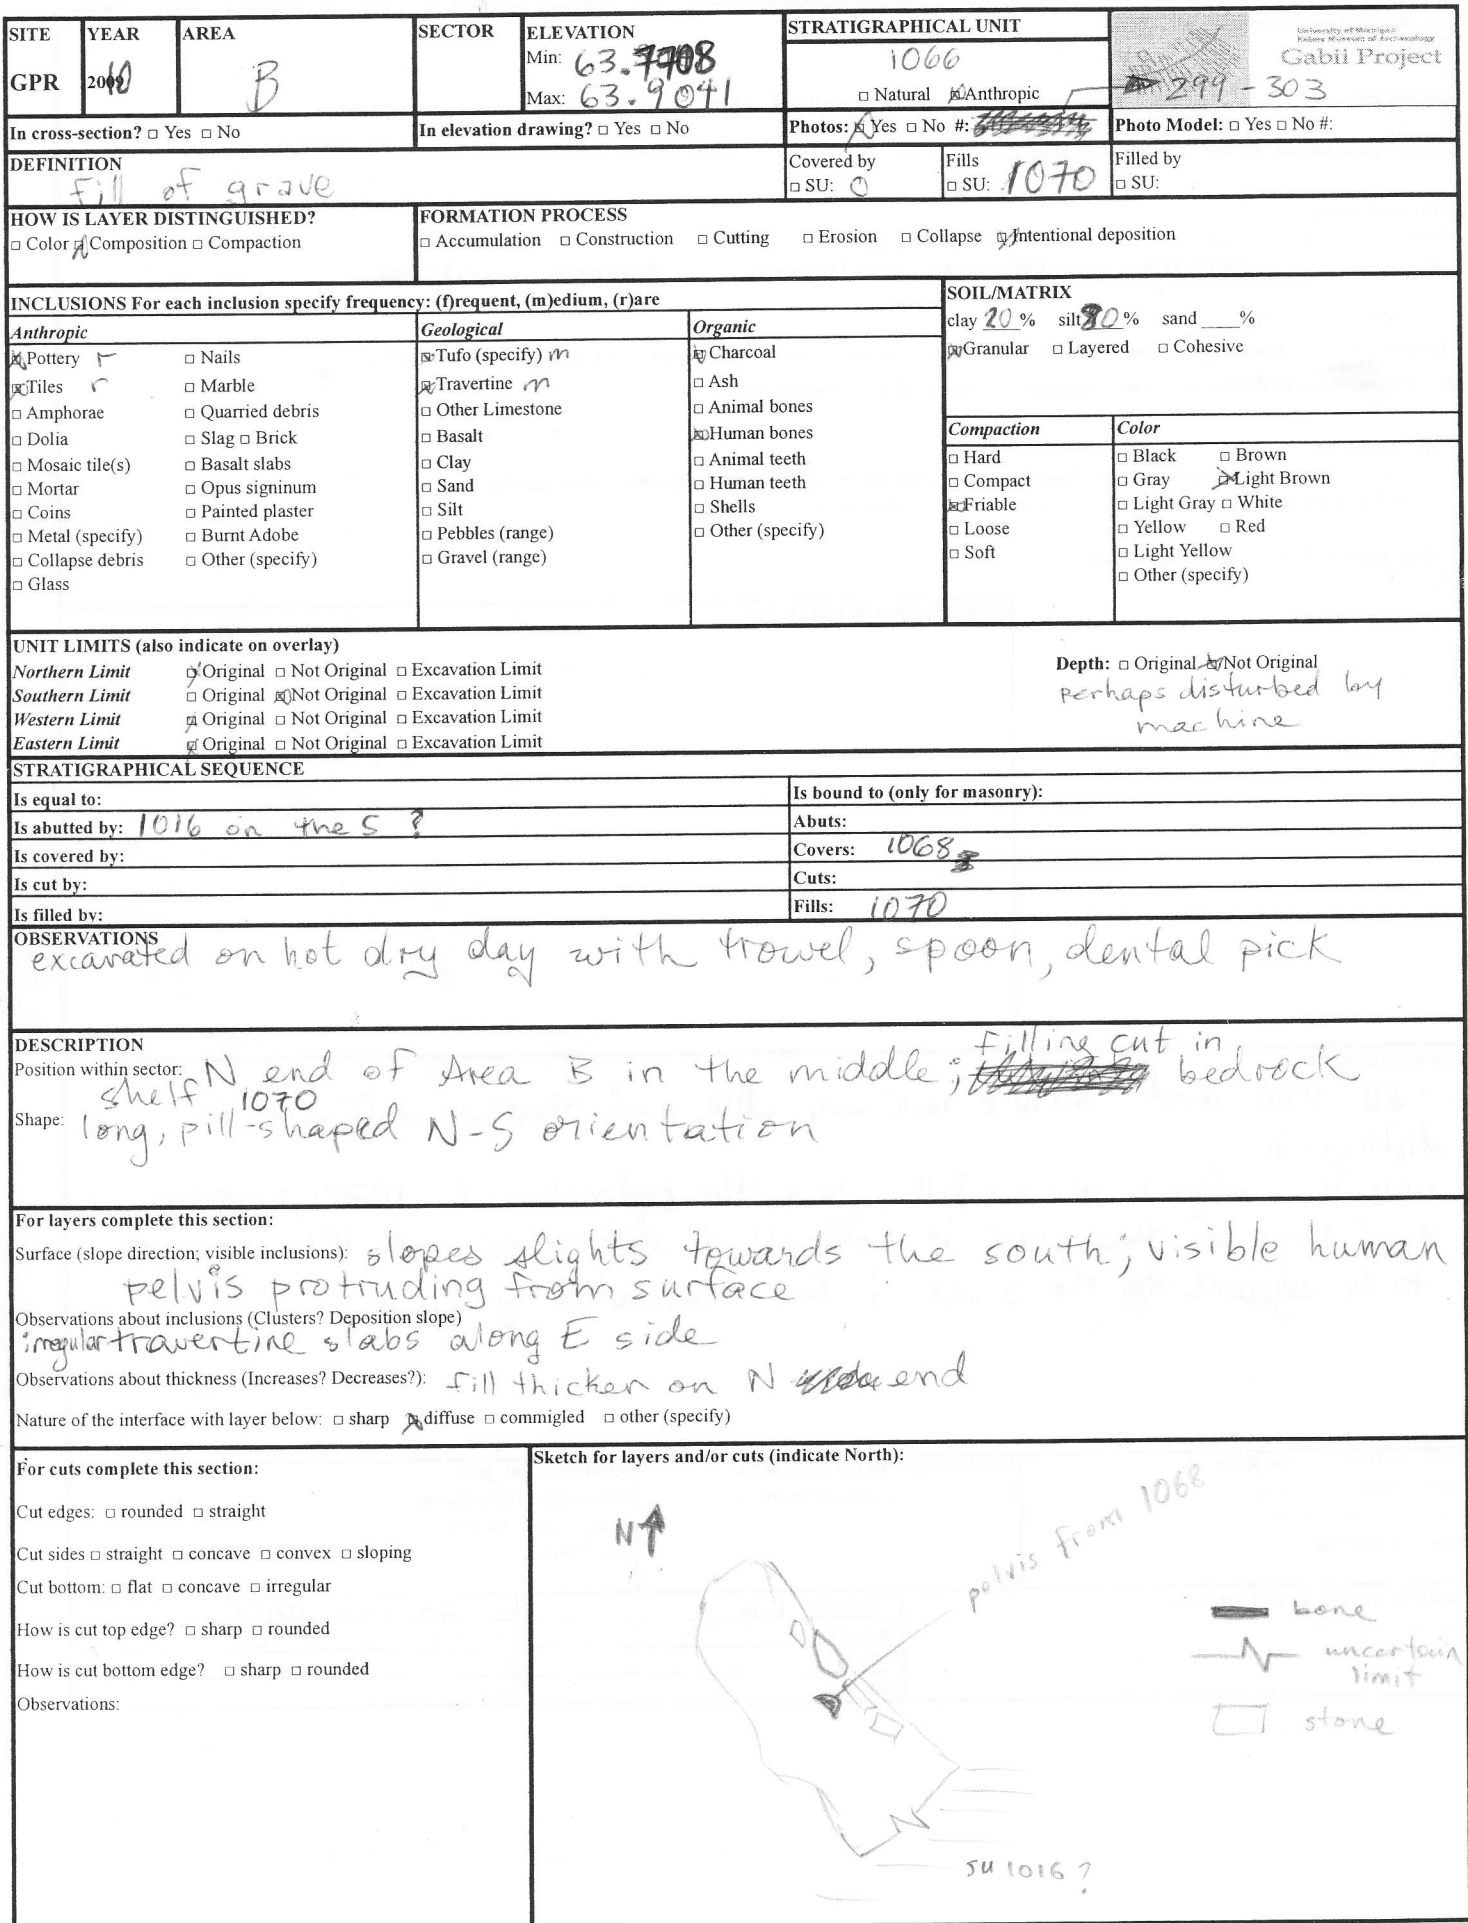 SITE YEAR AREA SECTOR ELEVATION STRATIGRAPHICAL UNIT
University of Michigan
Kelsey Museum of Archaeology
Gabii Project
GPR 2010 B Min: 63.7708 1066
Max: 63.9041 □ Natural ☒ Anthropic 299 - 303
In cross-section? □ Yes □ No In elevation drawing? □ Yes □ No Photos: ☒ Yes □ No #: Photo Model: □ Yes □ No #:
DEFINITION Covered by Fills Filled by
fill of grave □ SU: 0 □ SU: 1070 □ SU:
HOW IS LAYER DISTINGUISHED? FORMATION PROCESS
□ Color ☒ Composition □ Compaction □ Accumulation □ Construction □ Cutting □ Erosion □ Collapse ☒ Intentional deposition
INCLUSIONS For each inclusion specify frequency: (f)requent, (m)edium, (r)are
Anthropic
☒ Pottery r □ Nails
☒ Tiles r □ Marble
□ Amphorae □ Quarried debris
□ Dolia □ Slag □ Brick
□ Mosaic tile(s) □ Basalt slabs
□ Mortar □ Opus signinum
□ Coins □ Painted plaster
□ Metal (specify) □ Burnt Adobe
□ Collapse debris □ Other (specify)
□ Glass
Geological
☒ Tufo (specify) m
☒ Travertine m
□ Other Limestone
□ Basalt
□ Clay
□ Sand
□ Silt
□ Pebbles (range)
□ Gravel (range)
Organic
☒ Charcoal
□ Ash
□ Animal bones
☒ Human bones
□ Animal teeth
□ Human teeth
□ Shells
□ Other (specify)
SOIL/MATRIX
clay 20 % silt 80 % sand ____%
☒ Granular □ Layered □ Cohesive
Compaction
□ Hard
□ Compact
☒ Friable
□ Loose
□ Soft
Color
□ Black □ Brown
□ Gray ☒ Light Brown
□ Light Gray □ White
□ Yellow □ Red
□ Light Yellow
□ Other (specify)
UNIT LIMITS (also indicate on overlay)
Northern Limit ☒ Original □ Not Original □ Excavation Limit
Southern Limit □ Original ☒ Not Original □ Excavation Limit
Western Limit ☒ Original □ Not Original □ Excavation Limit
Eastern Limit ☒ Original □ Not Original □ Excavation Limit
Depth: □ Original ☒ Not Original
Perhaps disturbed by
machine
STRATIGRAPHICAL SEQUENCE
Is equal to: Is bound to (only for masonry):
Is abutted by: 1016 on the S ? Abuts:
Is covered by: Covers: 1068
Is cut by: Cuts:
Is filled by: Fills: 1070
OBSERVATIONS
excavated on hot dry day with trowel, spoon, dental pick
DESCRIPTION
filling cut in
Position within sector: N end of Area B in the middle; bedrock
shelf 1070
Shape: long, pill-shaped N-S orientation
For layers complete this section:
Surface (slope direction; visible inclusions): slopes slights towards the south; visible human
pelvis protruding from surface
Observations about inclusions (Clusters? Deposition slope)
irregular travertine slabs along E side
Observations about thickness (Increases? Decreases?): fill thicker on N end
Nature of the interface with layer below: □ sharp ☒ diffuse □ commigled □ other (specify)
For cuts complete this section:
Cut edges: □ rounded □ straight
Cut sides □ straight □ concave □ convex □ sloping
Cut bottom: □ flat □ concave □ irregular
How is cut top edge? □ sharp □ rounded
How is cut bottom edge? □ sharp □ rounded
Observations:
Sketch for layers and/or cuts (indicate North):
N
pelvis from 1068
bone
uncertain
limit
stone
SU 1016 ?